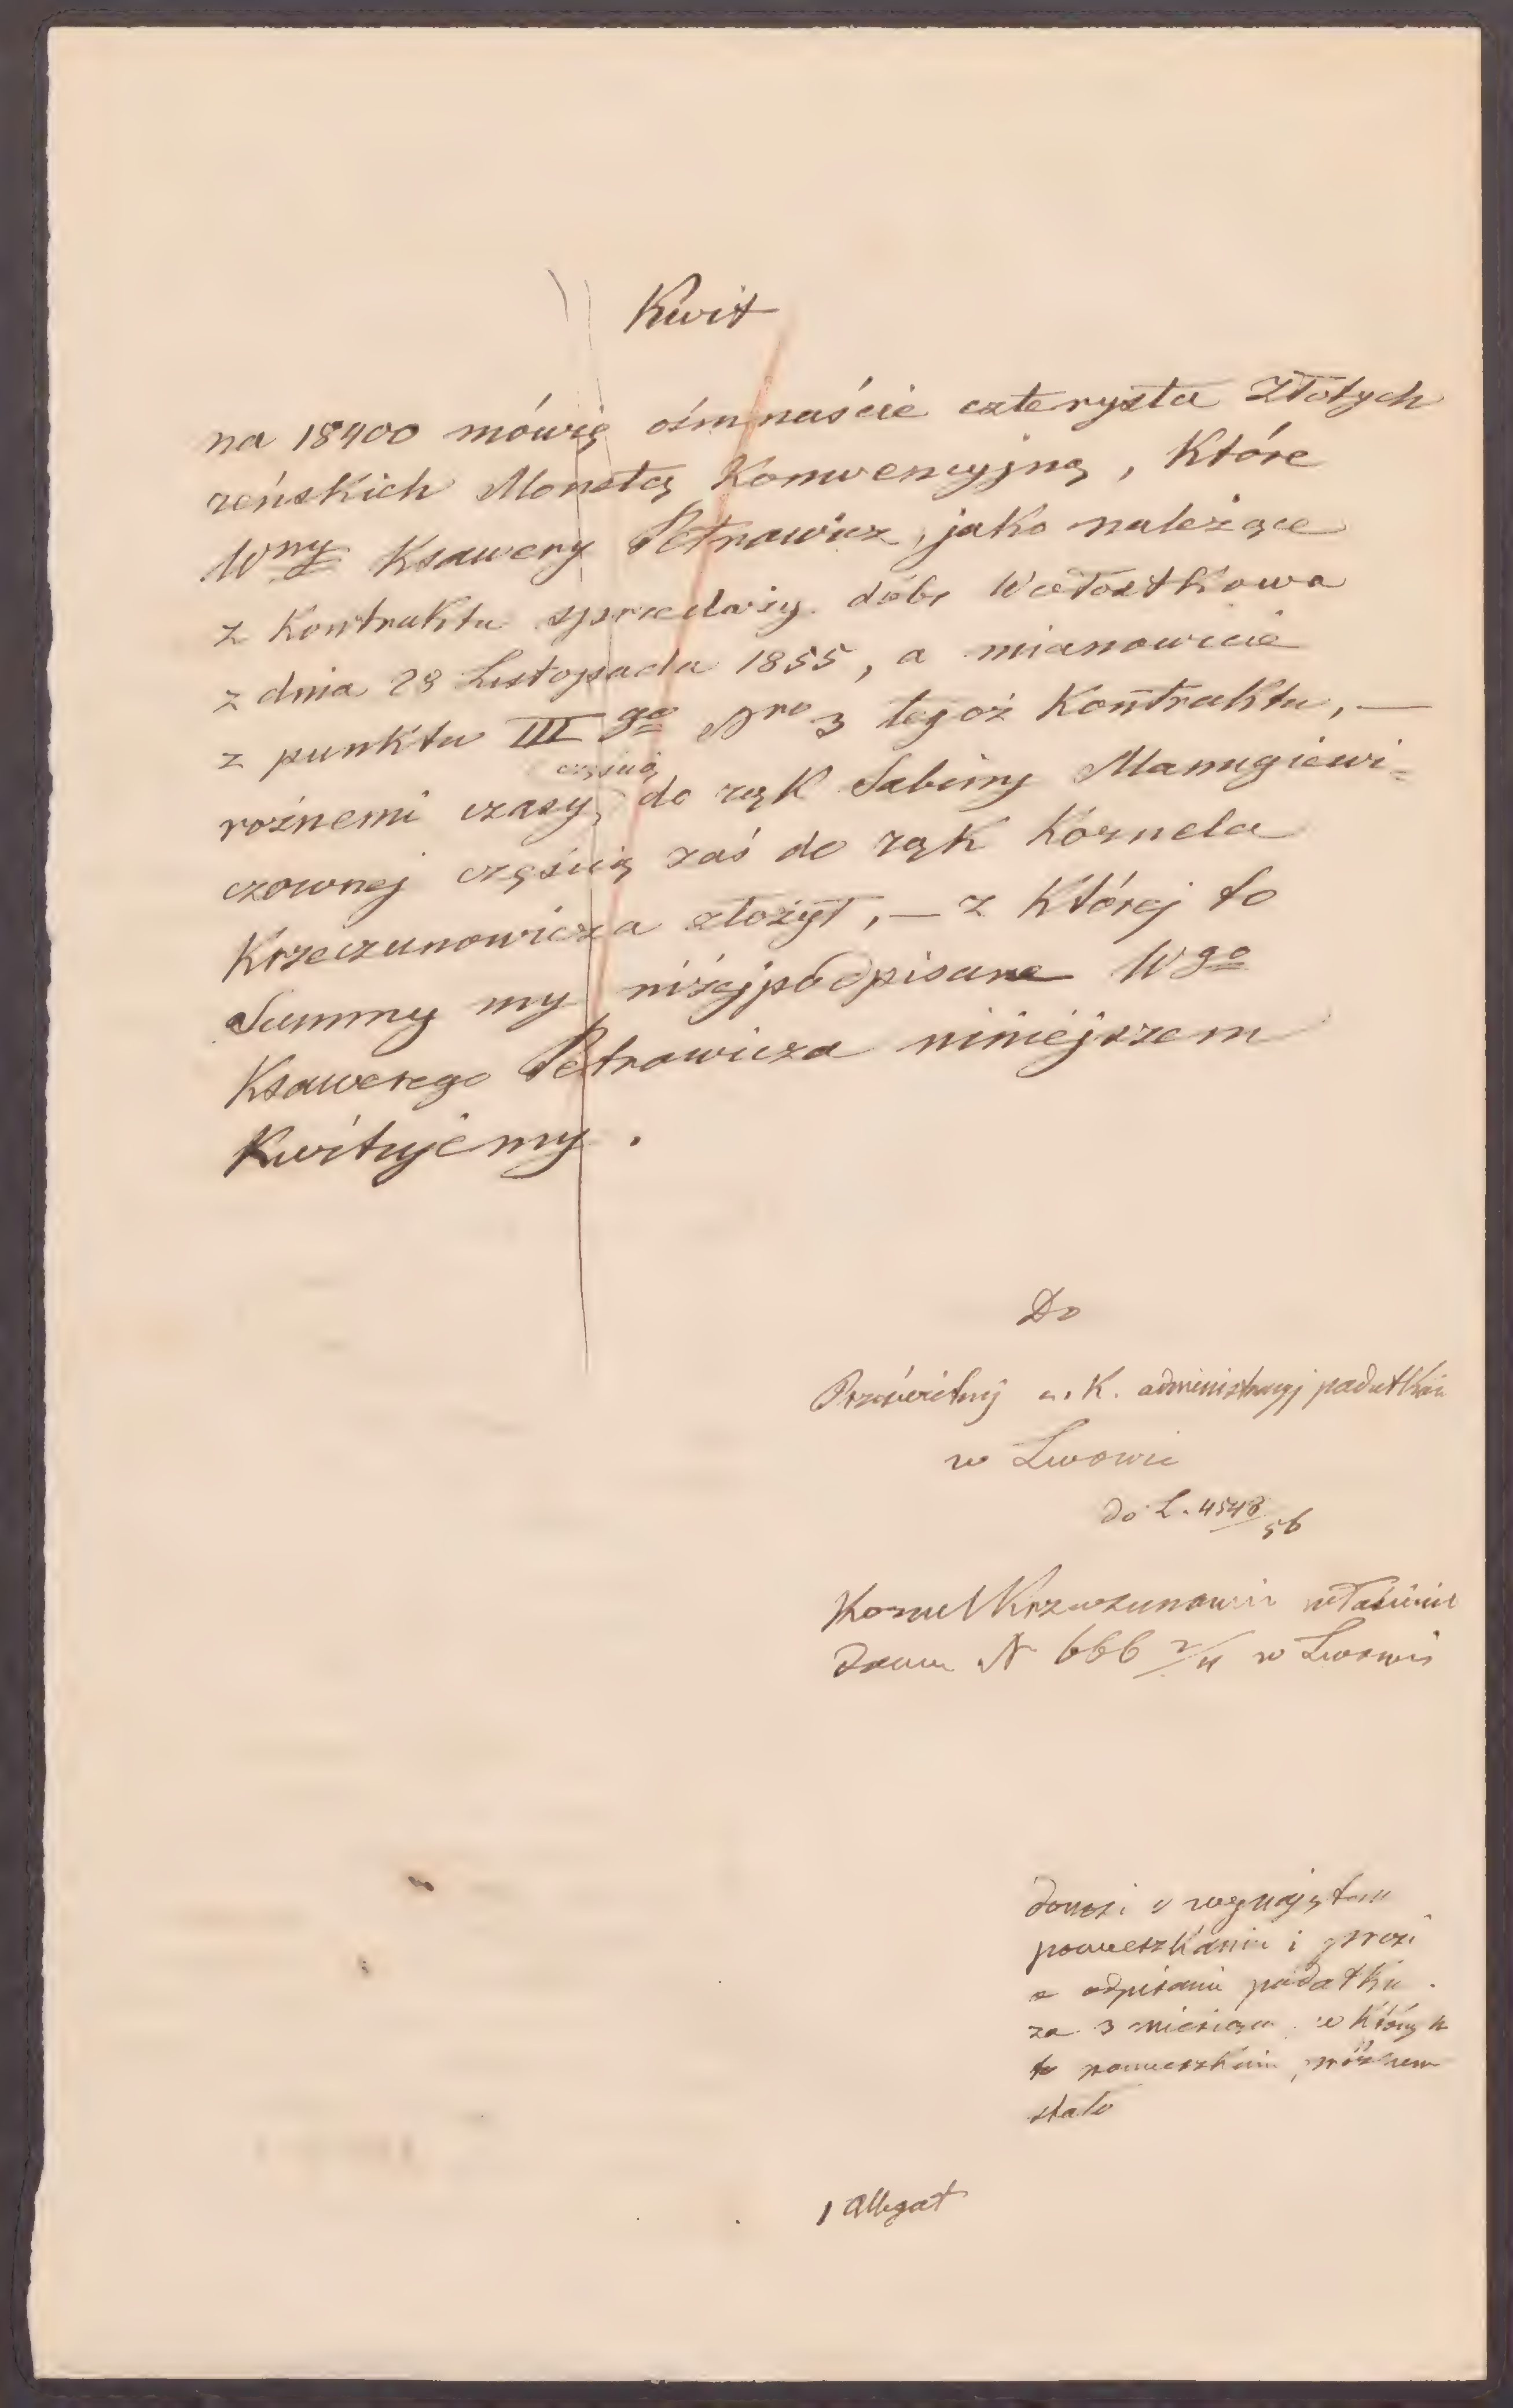 Kwit
na 18400 mówię ośmnaście czterysta Złotych
reńskich Monetą Konwencyjną, Które
Wny Ksawery Petrowicz, jako należące
z Kontraktu sprzedaży dóbr
z dnia 28 Listopada 1855, a mianowicie
z punktu III go Nro 3 tegoż Kontraktu, —
rożnemi czasy, częścią do rąk Sabiny Manugiewi=
czownej częścią zaś do rąk Kornela
Krzeczunowicza złożył, — z Której to
Summy my niżejpodpisane Wgo
Ksawerego Petrowicza niniejszem
Kwitujemy.
Do
Prześwietnej c. K. administracyj podatków
w Lwowie
do L. 4548/56
Kornel Krzeczunowicz właściciel
domu N 666 2/4 w Lwowie
donosi o wynajętem
pomieszkaniu i prosi
o odpisanie podatku
za 3 miesiące w których
to pomieszkanie próżnem
stało
1 Allegat